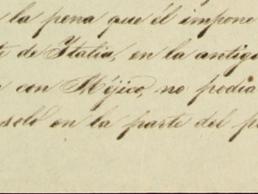 la pena que él impone
de Italia, en la antigu
con Méjico, no podia
solo en la parte del p